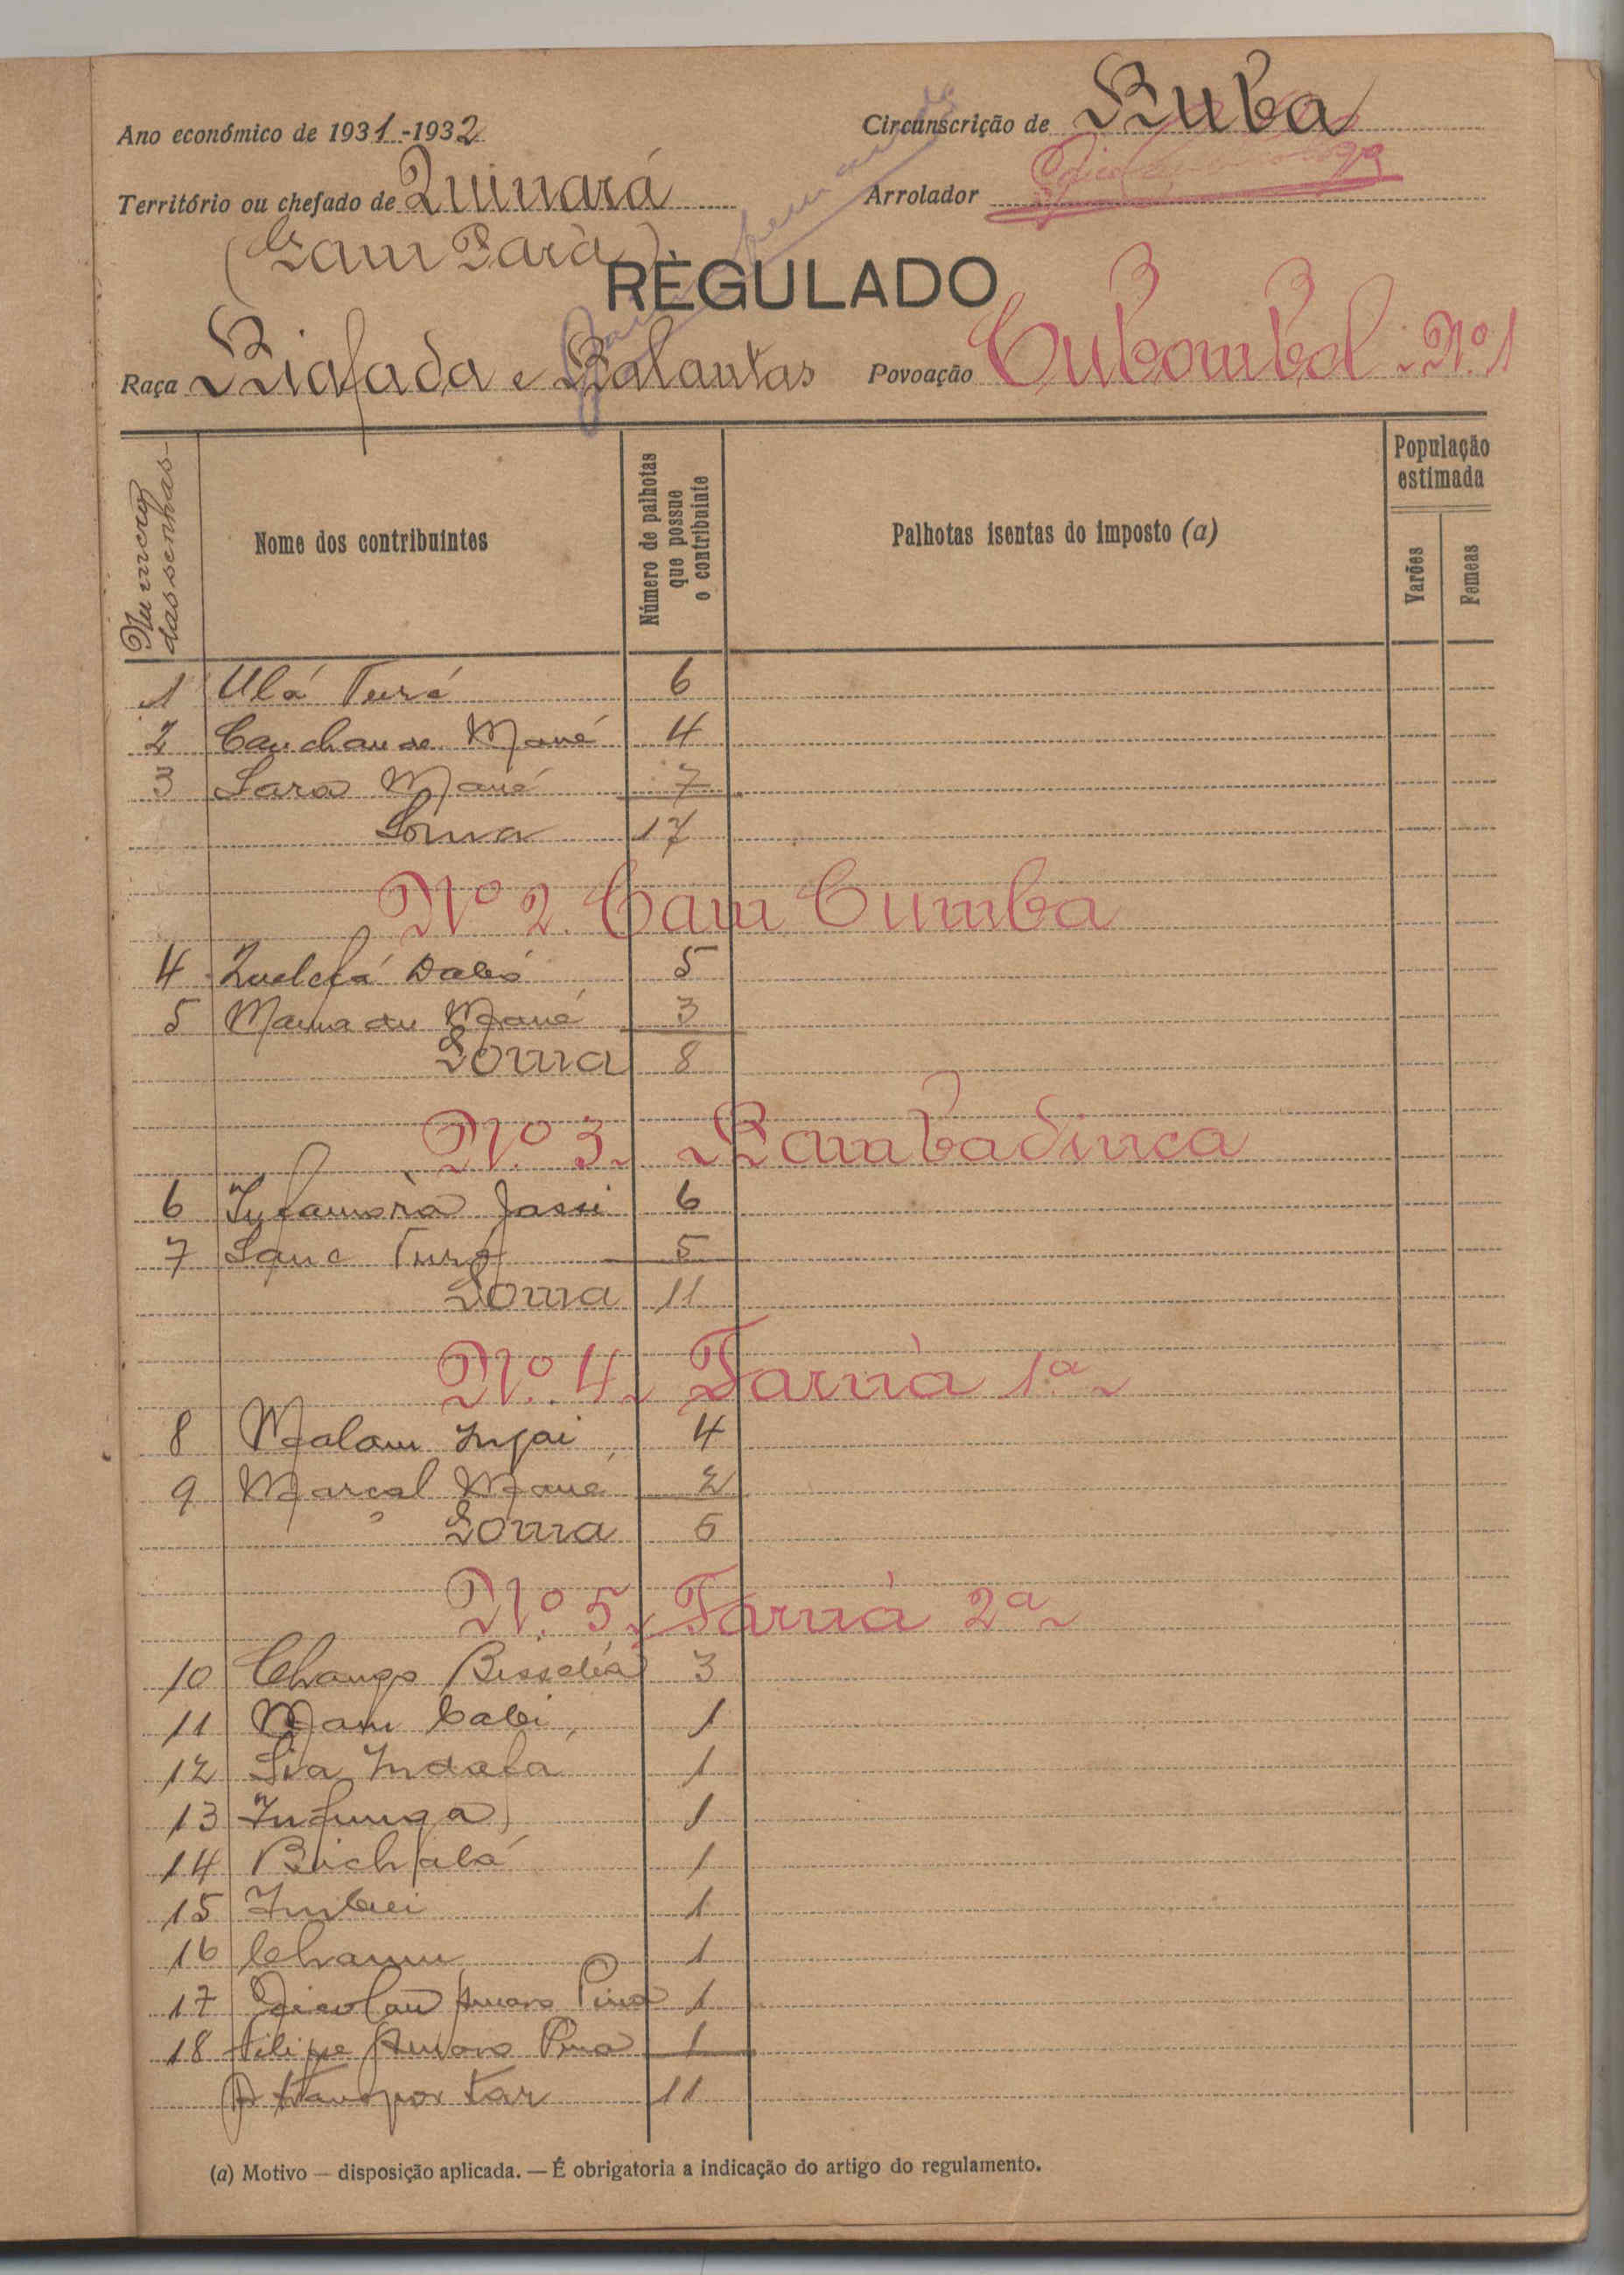 Ano económico de 1931-1932
Circunscrição de Buba
Território ou chefado de Quinará
Arrolador
(Gam Pará)
REGULADO
Raça Biafada e Balantas
Povoação Cubambol Nº 1
Numeros das senhas
Nome dos contribuintes
Número de palhotas que possue o contribuinte
Palhotas isentas do imposto (a)
População estimada
Varões
Femeas
1 Ulá Turé 6
2 Cauchande Mané 4
3 Lara Mané 7
Soma 17
Nº 2. Cam Cumba
4 Dabó 5
5 Mamadu Mané 3
Soma 8
Nº 3 Bambadinca
6 Infamorà Jassi 6
7 Sanc Turé 5
Soma 11
Nº. 4 Farnà 1ª
8 Malam Injai 4
9 Marçal Mané 2
Soma 6
Nº. 5 Farná 2ª
10 Chango 3
11 Cabi 1
12 Sia Indafá 1
13 1
14 Bichfalá 1
15 Imbei 1
16 1
17 Nicolau Amaro Pina 1
18 Filipe Amaro Pina 1
A transportar 11
(a) Motivo — disposição aplicada. — É obrigatoria a indicação do artigo do regulamento.